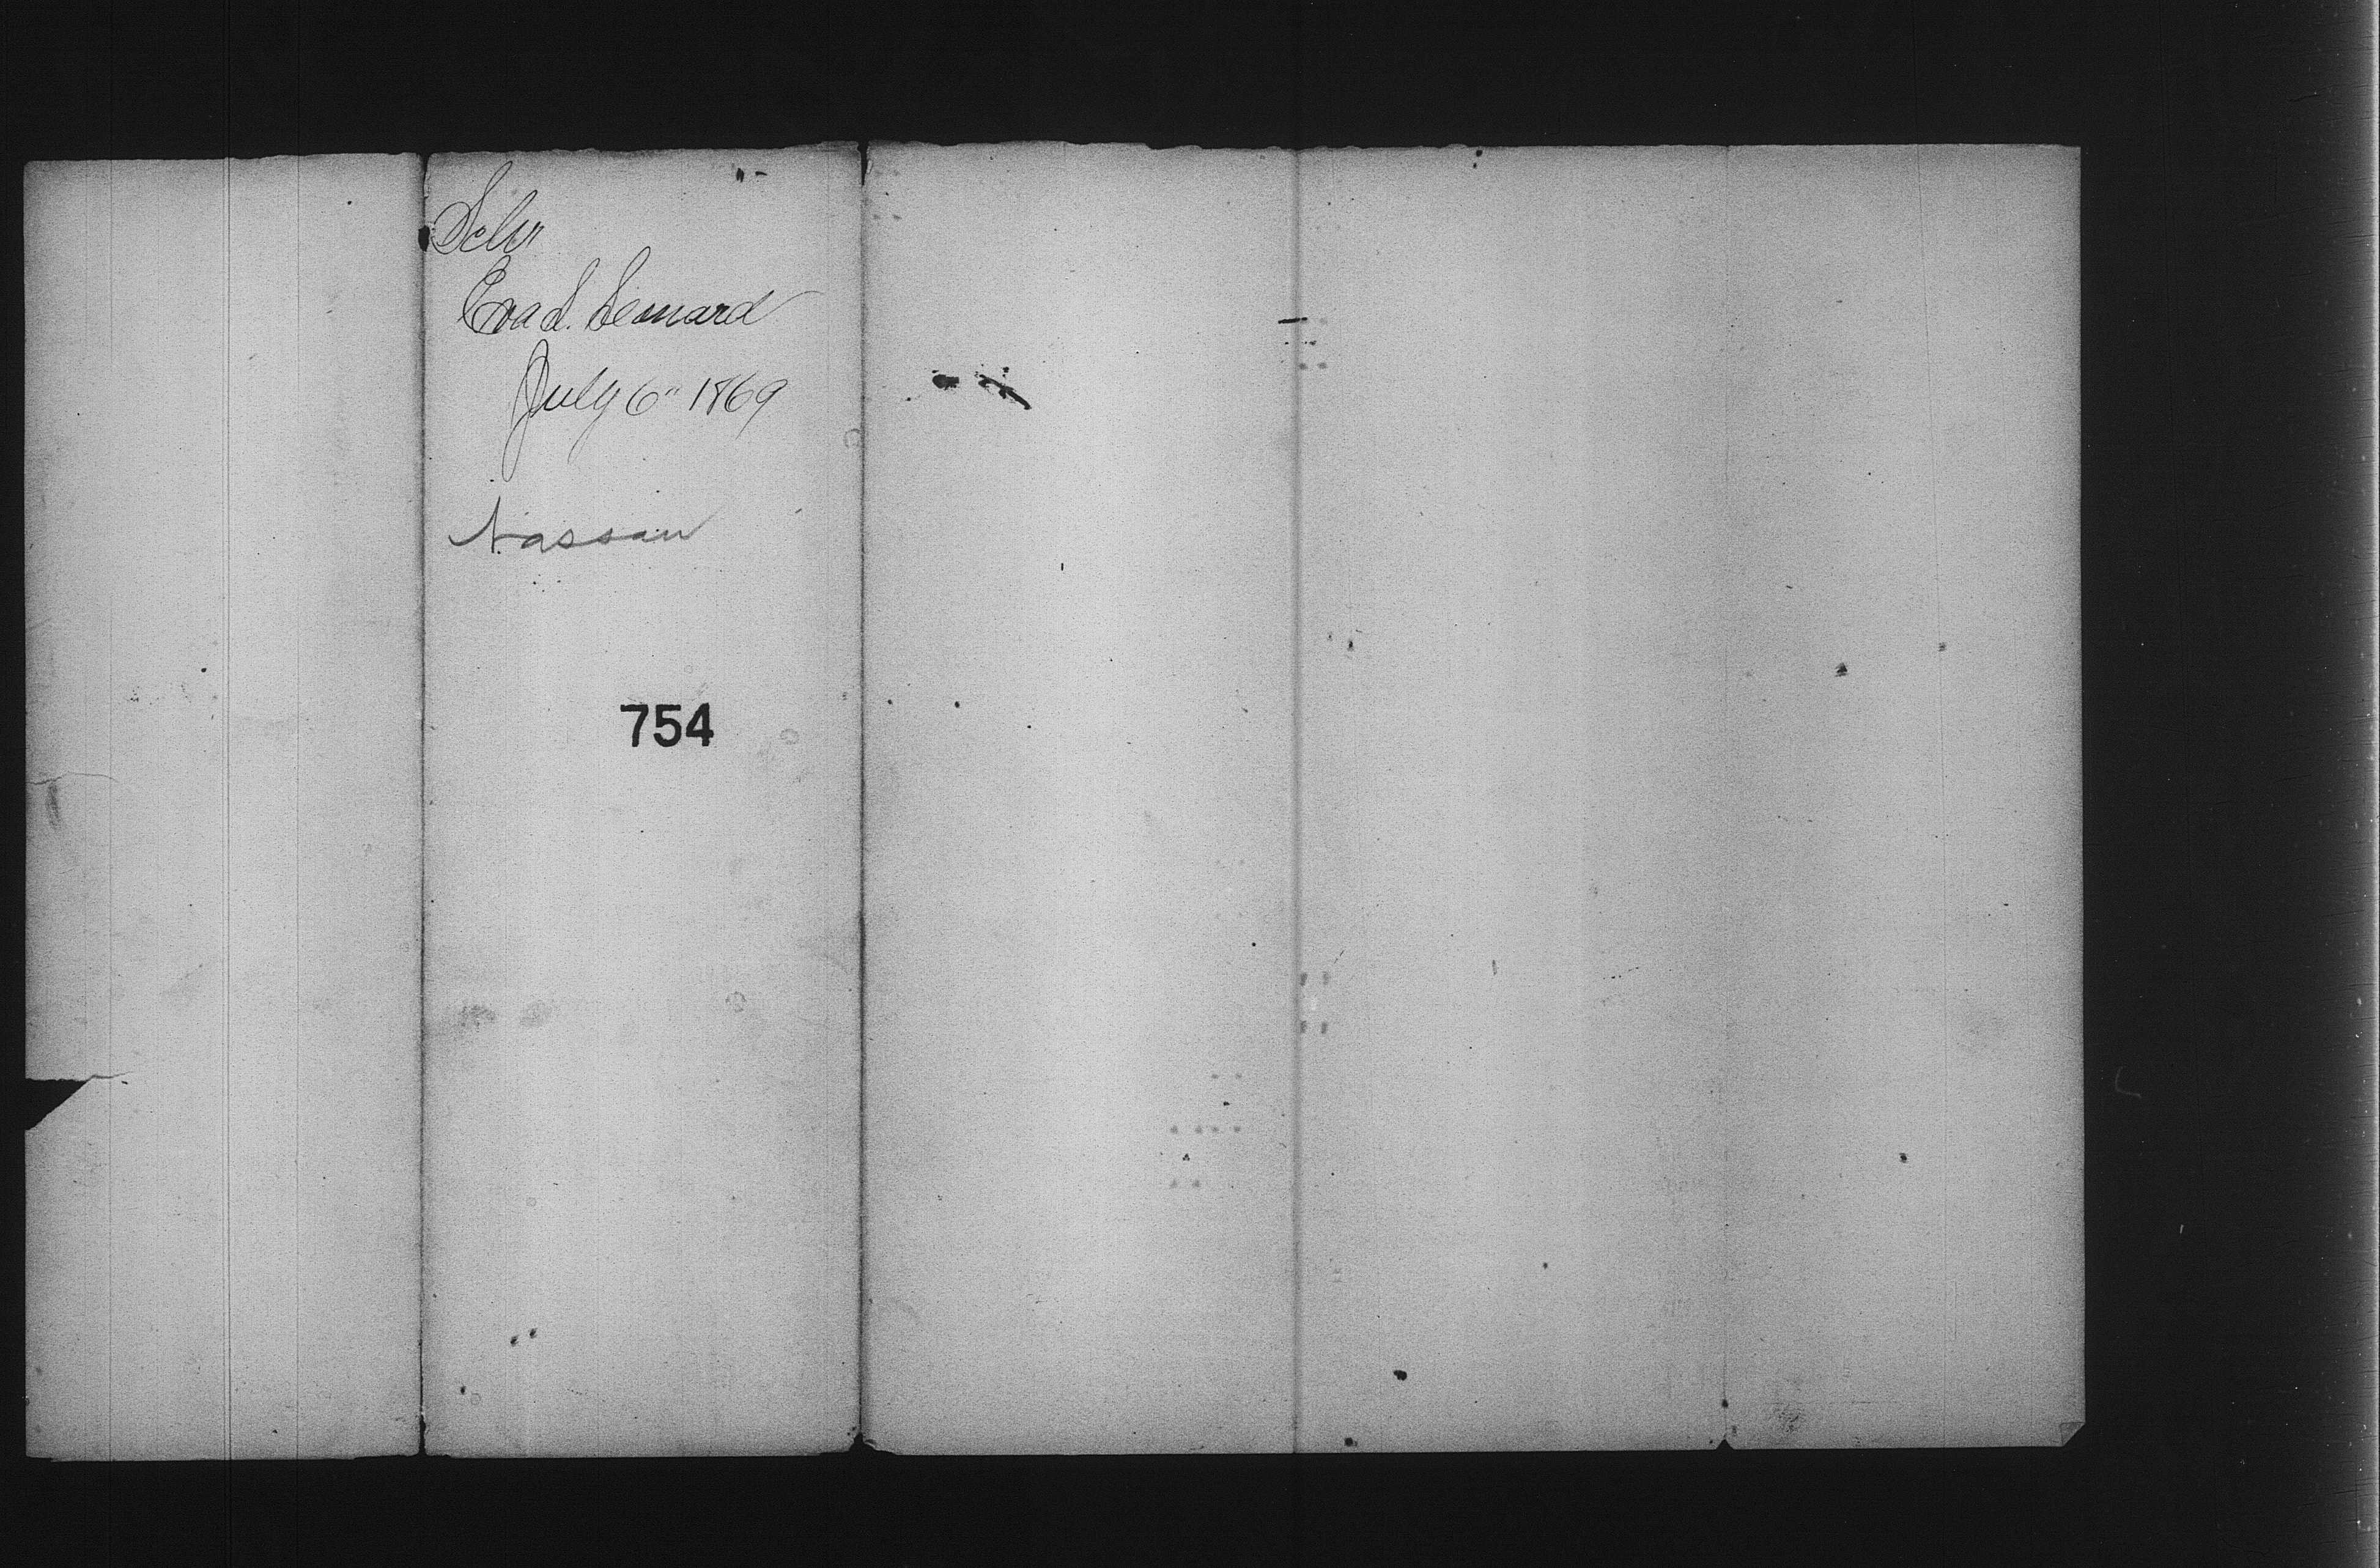 Schr
Eva L. Leonard
July 6" 1869
Nassau
754